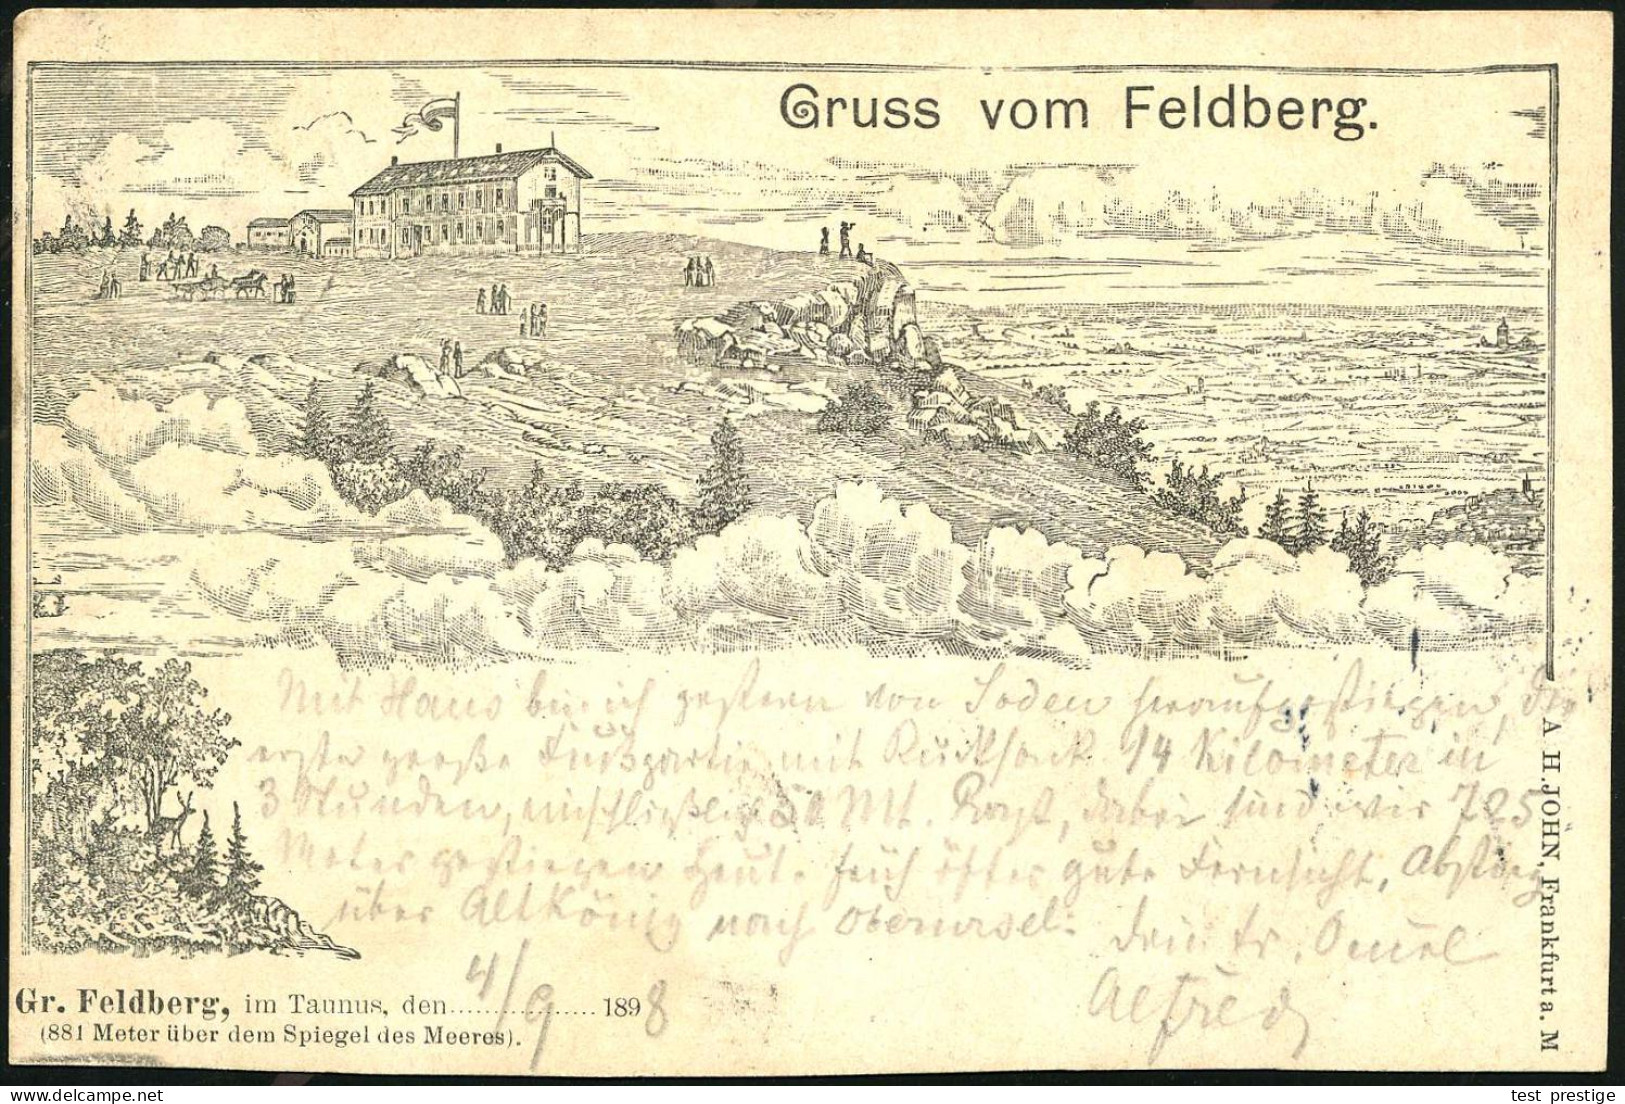 Gruss vom Feldberg.
Mit Hans bin ich gestern von Soden heraufgestiegen, die
erste große Fußpartie mit Rucksack. 14 Kilometer in
3 Stunden, einschließlich 50 Mt. Rast, dabei sind wir 725
Meter gestiegen heut. früh öfter gute Fernsicht, Abstieg
über Altkönig nach Oberursel.
Dein tr. Onkel
Alfred
Gr. Feldberg, im Taunus, den 4/9 1898
(881 Meter über dem Spiegel des Meeres).
A. H. JOHN, Frankfurt a. M
test prestige